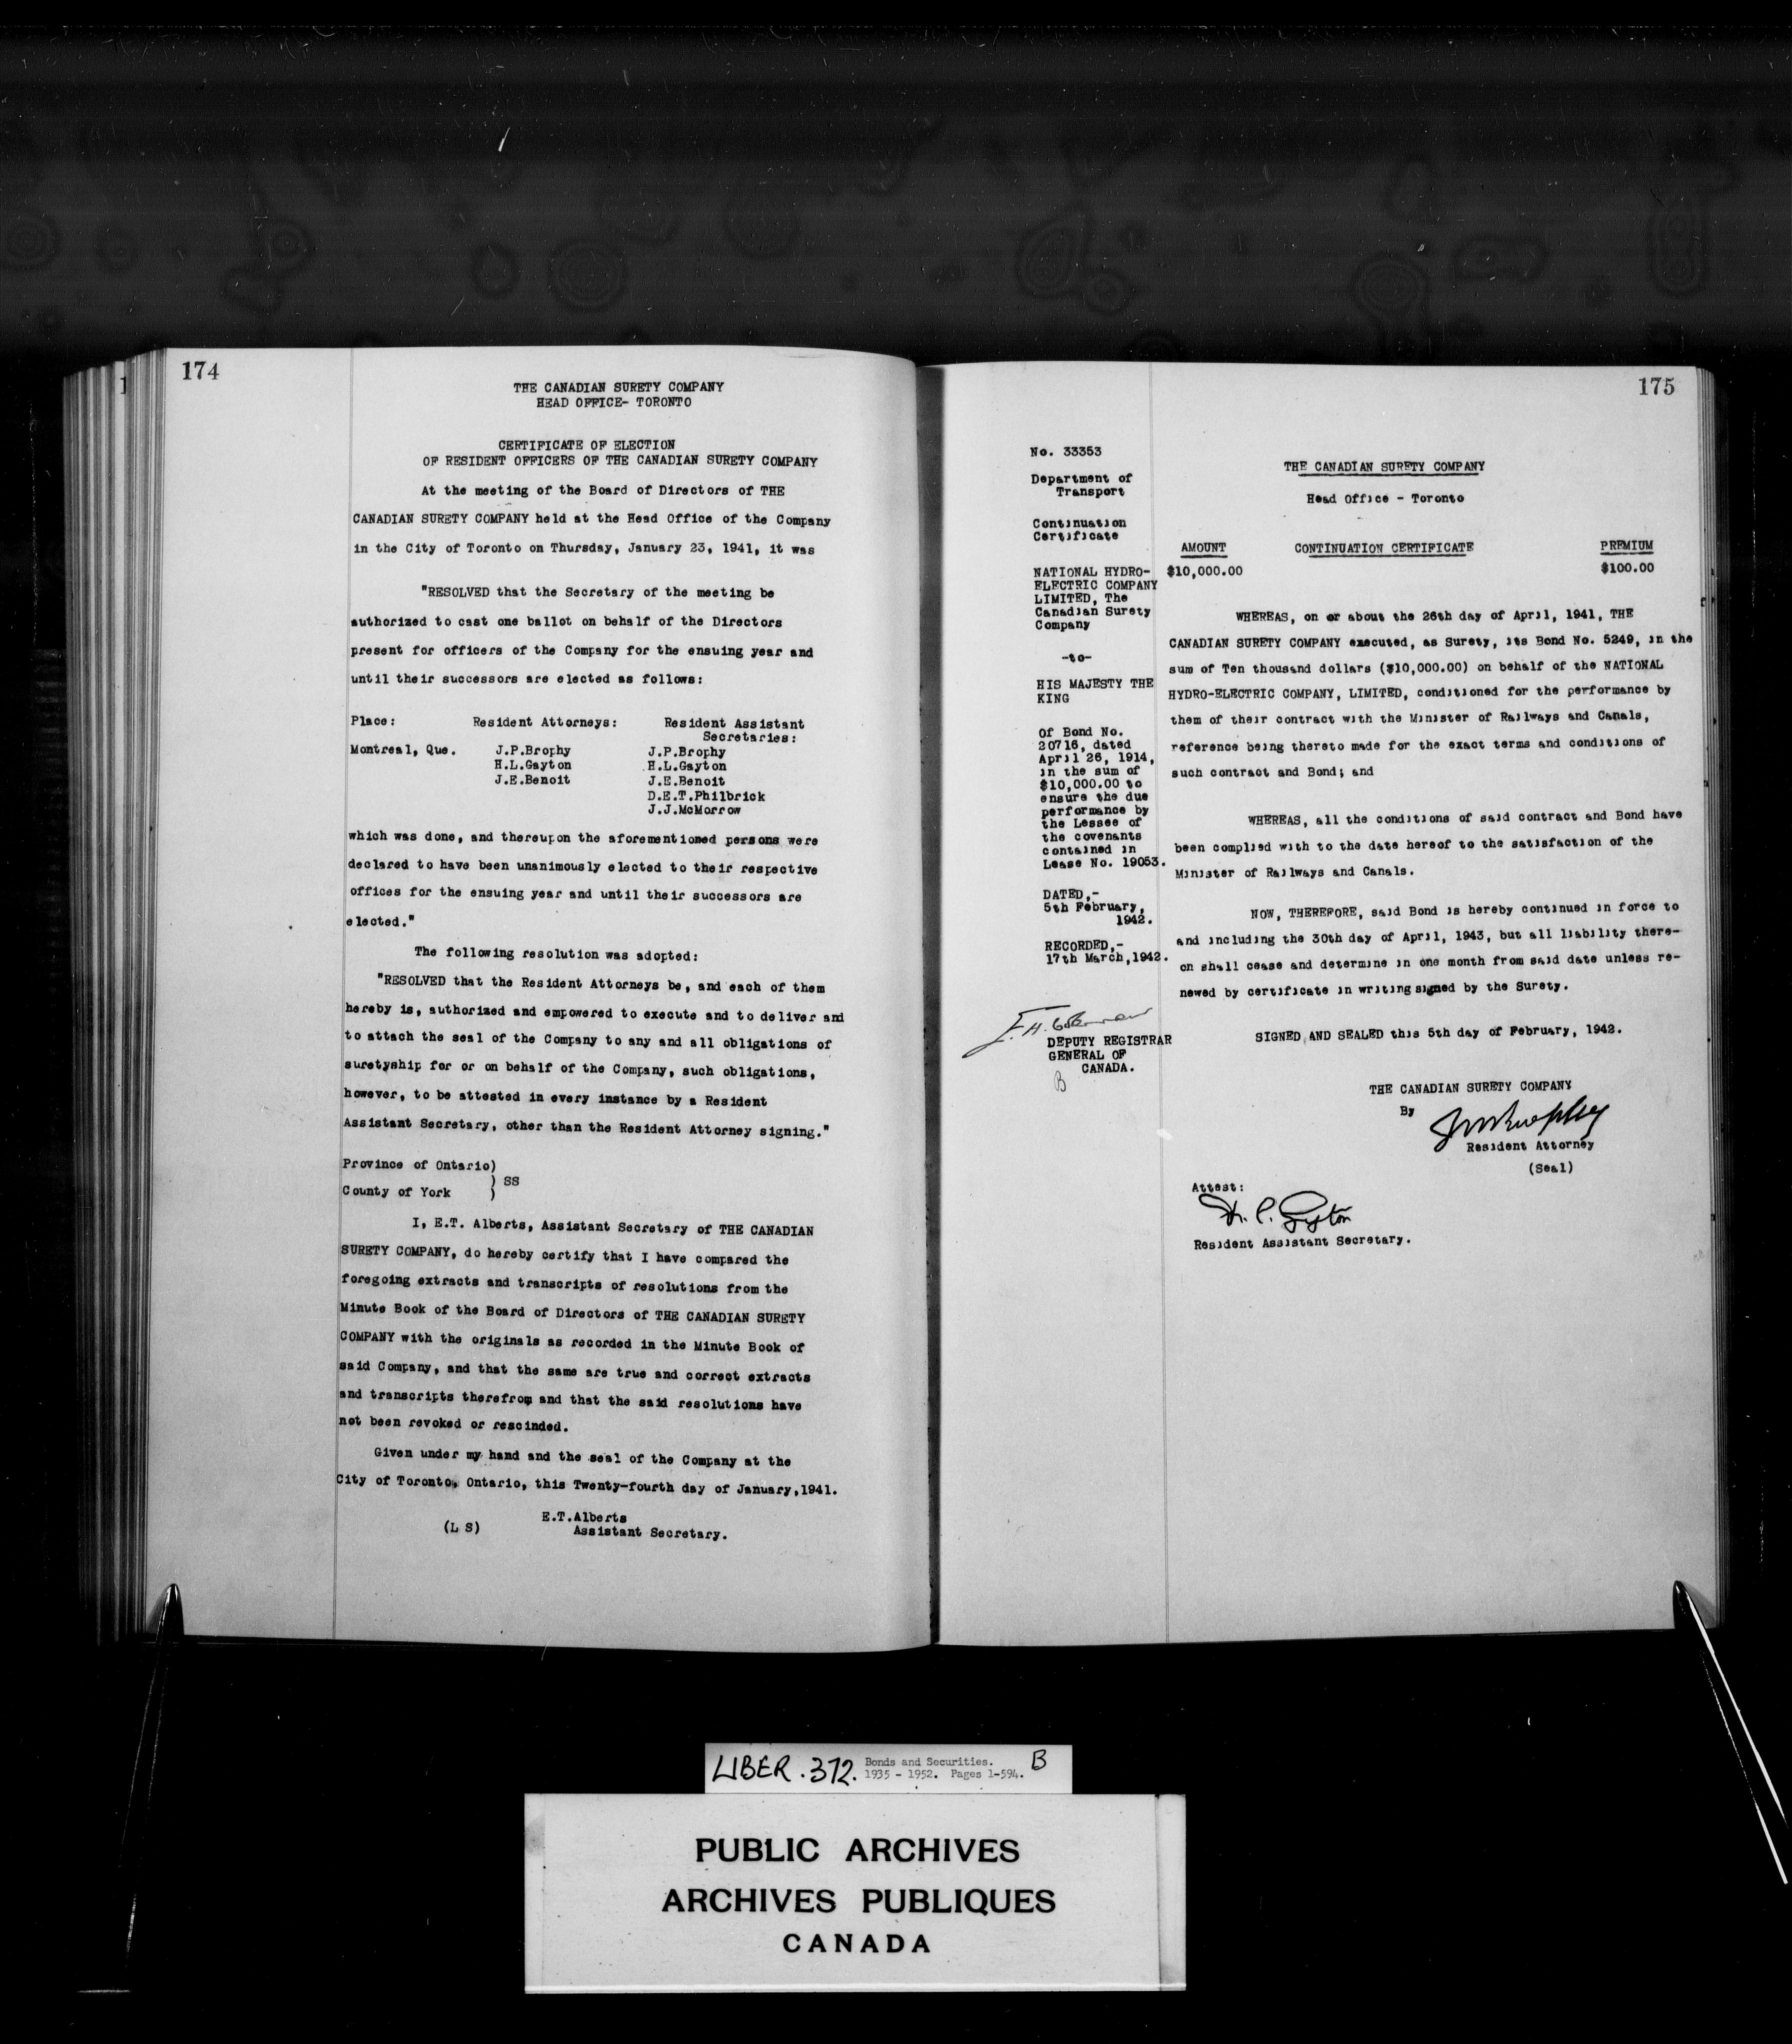 174
THE CANADIAN SURETY COMPANY
HEAD OFFICE- TORONTO
CERTIFICATE OF ELECTION
OF RESIDENT OFFICERS OF THE CANADIAN SURETY COMPANY
At the meeting of the Board of Directors of THE
CANADIAN SURETY COMPANY held at the Head Office of the Company
in the City of Toronto on Thursday, January 23, 1941, it was
"RESOLVED that the Secretary of the meeting be
authorized to cast one ballot on behalf of the Directors
present for officers of the Company for the ensuing year and
until their successors are elected as follows:
Place: Resident Attorneys: Resident Assistant
Secretaries:
Montreal, Que. J.P.Brophy J.P.Brophy
H.L.Gayton H.L.Gayton
J.E.Benoit J.E.Benoit
D.E.T.Philbrick
J.J.McMorrow
which was done, and thereupon the aforementioned persons were
declared to have been unanimously elected to their respective
offices for the ensuing year and until their successors are
elected."
The following resolution was adopted:
"RESOLVED that the Resident Attorneys be, and each of them
hereby is, authorized and empowered to execute and to deliver and
to attach the seal of the Company to any and all obligations of
suretyship for or on behalf of the Company, such obligations,
however, to be attested in every instance by a Resident
Assistant Secretary, other than the Resident Attorney signing."
Province of Ontario)
) SS
County of York )
I, E.T. Alberts, Assistant Secretary of THE CANADIAN
SURETY COMPANY, do hereby certify that I have compared the
foregoing extracts and transcripts of resolutions from the
Minute Book of the Board of Directors of THE CANADIAN SURETY
COMPANY with the originals as recorded in the Minute Book of
said Company, and that the same are true and correct extracts
and transcripts therefrom and that the said resolutions have
not been revoked or rescinded.
Given under my hand and the seal of the Company at the
City of Toronto, Ontario, this Twenty-fourth day of January,1941.
E.T.Alberts
(L S) Assistant Secretary.
175
No. 33353
Department of
Transport
Continuation
Certificate
NATIONAL HYDRO-
ELECTRIC COMPANY
LIMITED, The
Canadian Surety
Company
-to-
HIS MAJESTY THE
KING
Of Bond No.
20716, dated
April 26, 1914,
in the sum of
$10,000.00 to
ensure the due
performance by
the Lessee of
the covenants
contained in
Lease No. 19053.
DATED,-
5th February,
1942.
RECORDED,-
17th March,1942.
DEPUTY REGISTRAR
GENERAL OF
CANADA.
B
THE CANADIAN SURETY COMPANY
Head Office - Toronto
AMOUNT CONTINUATION CERTIFICATE PREMIUM
$10,000.00 $100.00
WHEREAS, on or about the 26th day of April, 1941, THE
CANADIAN SURETY COMPANY executed, as Surety, its Bond No. 5249, in the
sum of Ten thousand dollars ($10,000.00) on behalf of the NATIONAL
HYDRO-ELECTRIC COMPANY, LIMITED, conditioned for the performance by
them of their contract with the Minister of Railways and Canals,
reference being thereto made for the exact terms and conditions of
such contract and Bond; and
WHEREAS, all the conditions of said contract and Bond have
been complied with to the date hereof to the satisfaction of the
Minister of Railways and Canals.
NOW, THEREFORE, said Bond is hereby continued in force to
and including the 30th day of April, 1943, but all liability there-
on shall cease and determine in one month from said date unless re-
newed by certificate in writing signed by the Surety.
SIGNED AND SEALED this 5th day of February, 1942.
THE CANADIAN SURETY COMPANY
By
Resident Attorney
(Seal)
Attest:
Resident Assistant Secretary.
LIBER . 372. Bonds and Securities. B
1935 - 1952. Pages 1-594.
PUBLIC ARCHIVES
ARCHIVES PUBLIQUES
CANADA